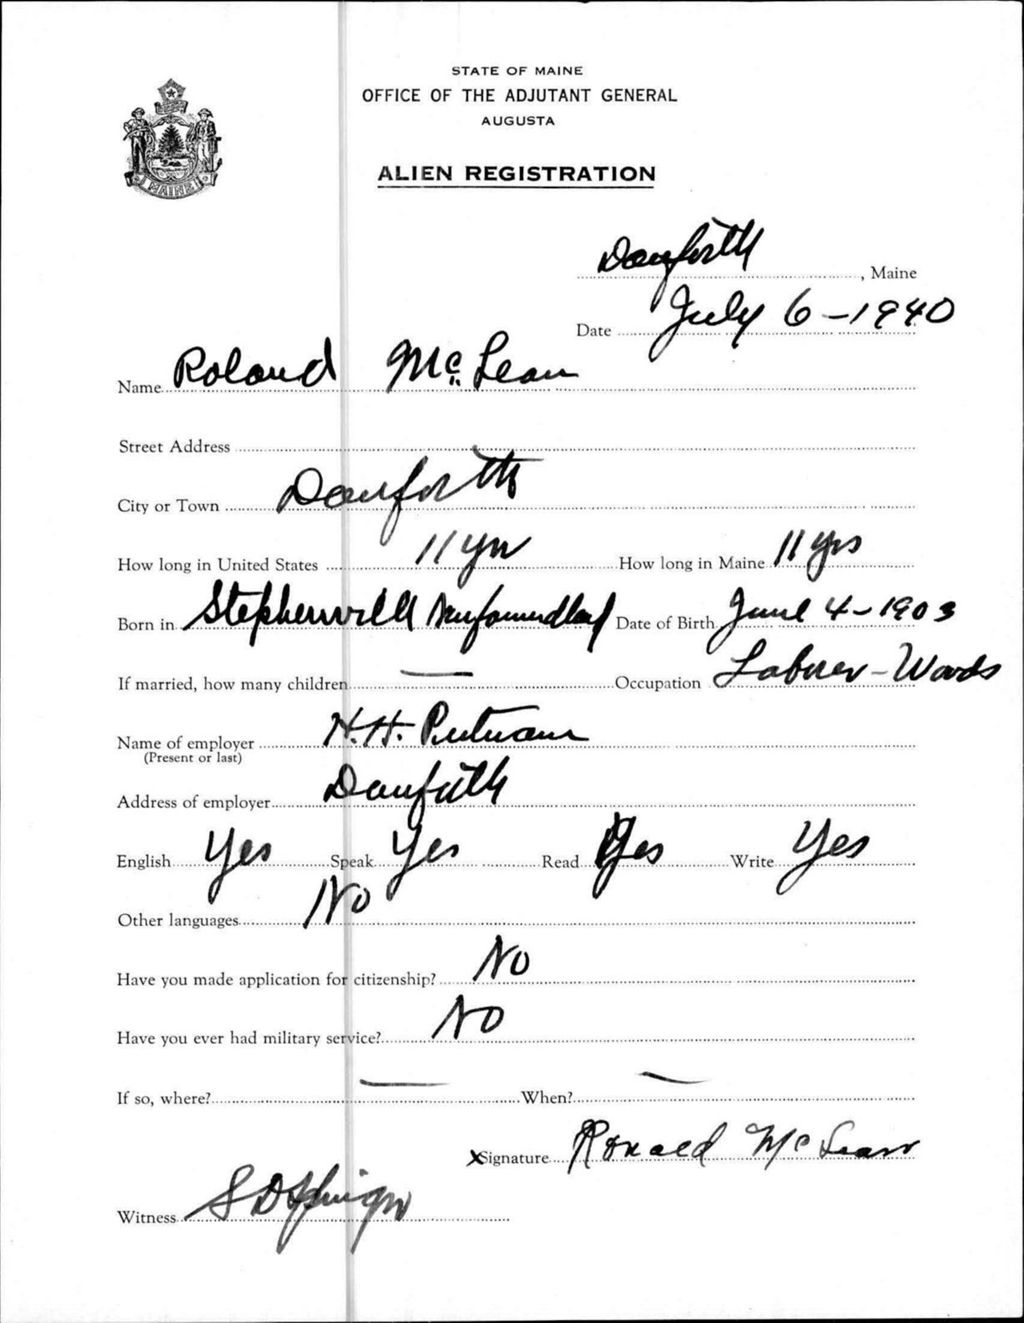 STATE OF MAINE
OFFICE OF THE ADJUTANT GENERAL
AUGUSTA
ALIEN REGISTRATION
MAINE
Danforth, Maine
Date July 6-1940
Name Roland McLean
Street Address
City or Town Danforth
How long in United States 11 yrs How long in Maine 11 yrs
Born in Stephenville Newfoundland Date of Birth June 4-1903
If married, how many children — Occupation Laborer-Woods
Name of employer H.H. Putnam
(Present or last)
Address of employer Danforth
English Yes Speak Yes Read Yes Write Yes
Other languages No
Have you made application for citizenship? No
Have you ever had military service? No
If so, where? — When? —
XSignature Ronald McLean
Witness S D